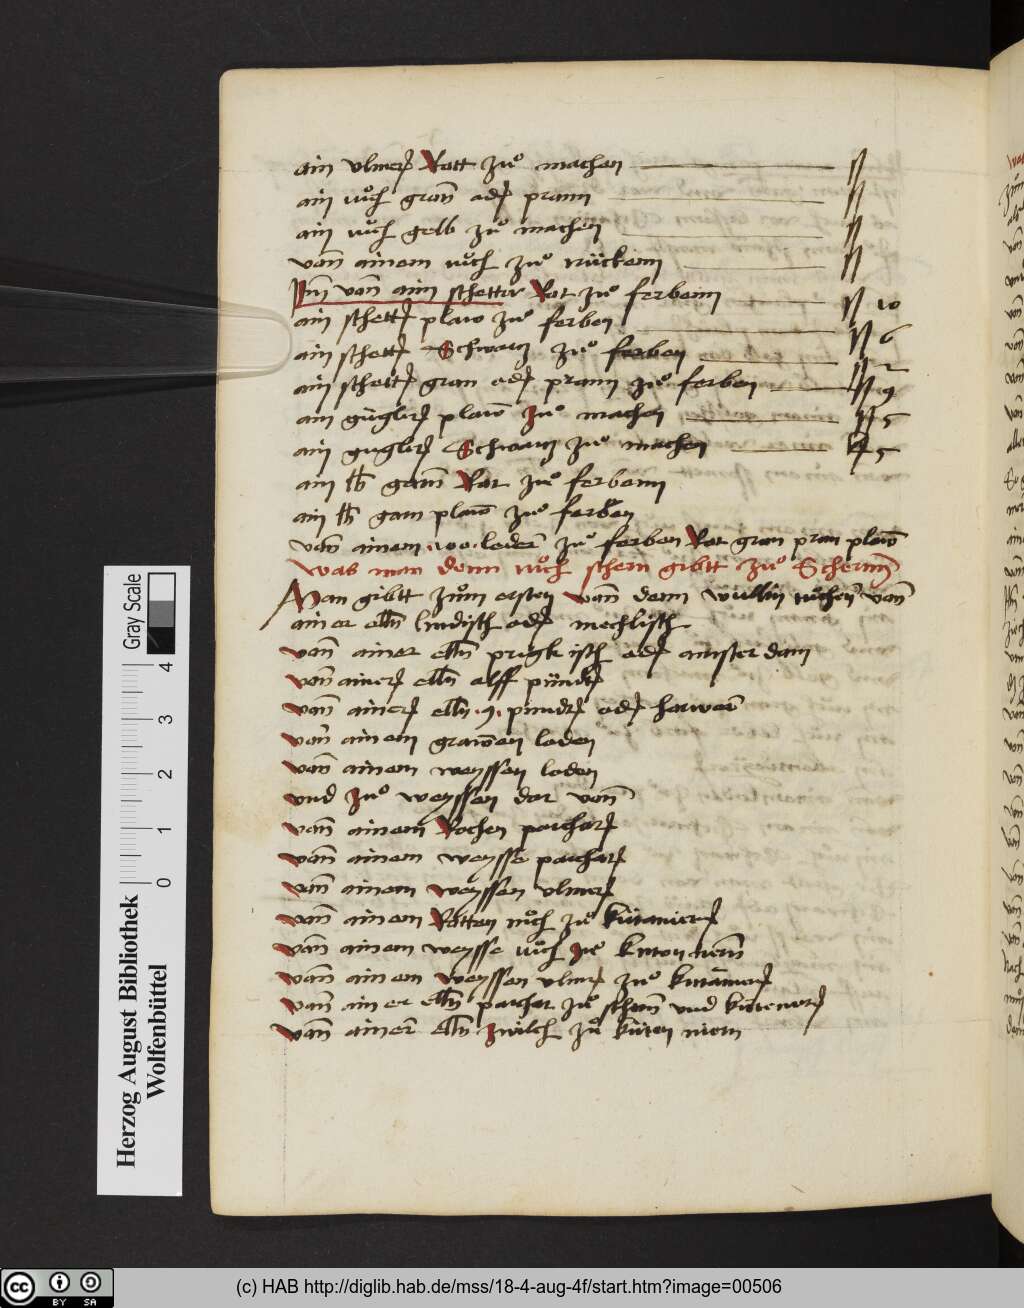 ain vlmer Rott zuͦ machen ß
ain tuͦch gron̄ oder prann ß
ain tuͦch gelb zuͦ machen ß
von̄ ainem tuͦch zuͦ rückenn ß
Im̄ von̄ aim schetter Rot zuͦ ferbenn ß 10
ain schetter plaw zuͦ ferben ß 6
ain schetter Schwartz zuͦ ferben ß
ain schetter gran oder prann zuͦ ferben ß 9
ain gügler plaw̄ zuͦ machen ß 5
ain gugler Schwartz zuͦ machen 5
ain lb garn̄ Rot zuͦ ferbenn
ain lb garn plaw̄ zuͦ ferben
van̄ ainem loder̄ zuͦ ferben Rot gran pran plaw̄
was man denn tuͦch schern gibtt zuͦ Schernn̄
Man gibtt zuͦm ersten van̄ denn wullin tuͦchen̄ van̄
ainer elln̄ lindisch oder mechlisch
von̄ ainer elln̄ prugk isch oder amster dam
von̄ ainer elln̄ alff pünder
van̄ ainer elln̄ .9. punder oder harwar̄
van̄ ainem graw̄en loden
van̄ ainem weyssen loden
vnd zuͦ weyssen dar von̄
van̄ ainem Rochen parchar
van̄ ainem weysse parchar
van̄ ainem weyssen vlmer
van̄ ainem Rotten tuͦch zuͦ
van̄ ainem weysse tuͦch zuͦ
van̄ ainem weyssen vlmer zuͦ
van̄ ainer elln̄ parchar zuͦ schern̄ vnd
van̄ ainer̄ elln̄ zwilch zuͦ
Herzog August Bibliothek
Wolfenbüttel
0 1 2 3 4
Gray Scale
cc BY SA
(c) HAB http://diglib.hab.de/mss/18-4-aug-4f/start.htm?image=00506